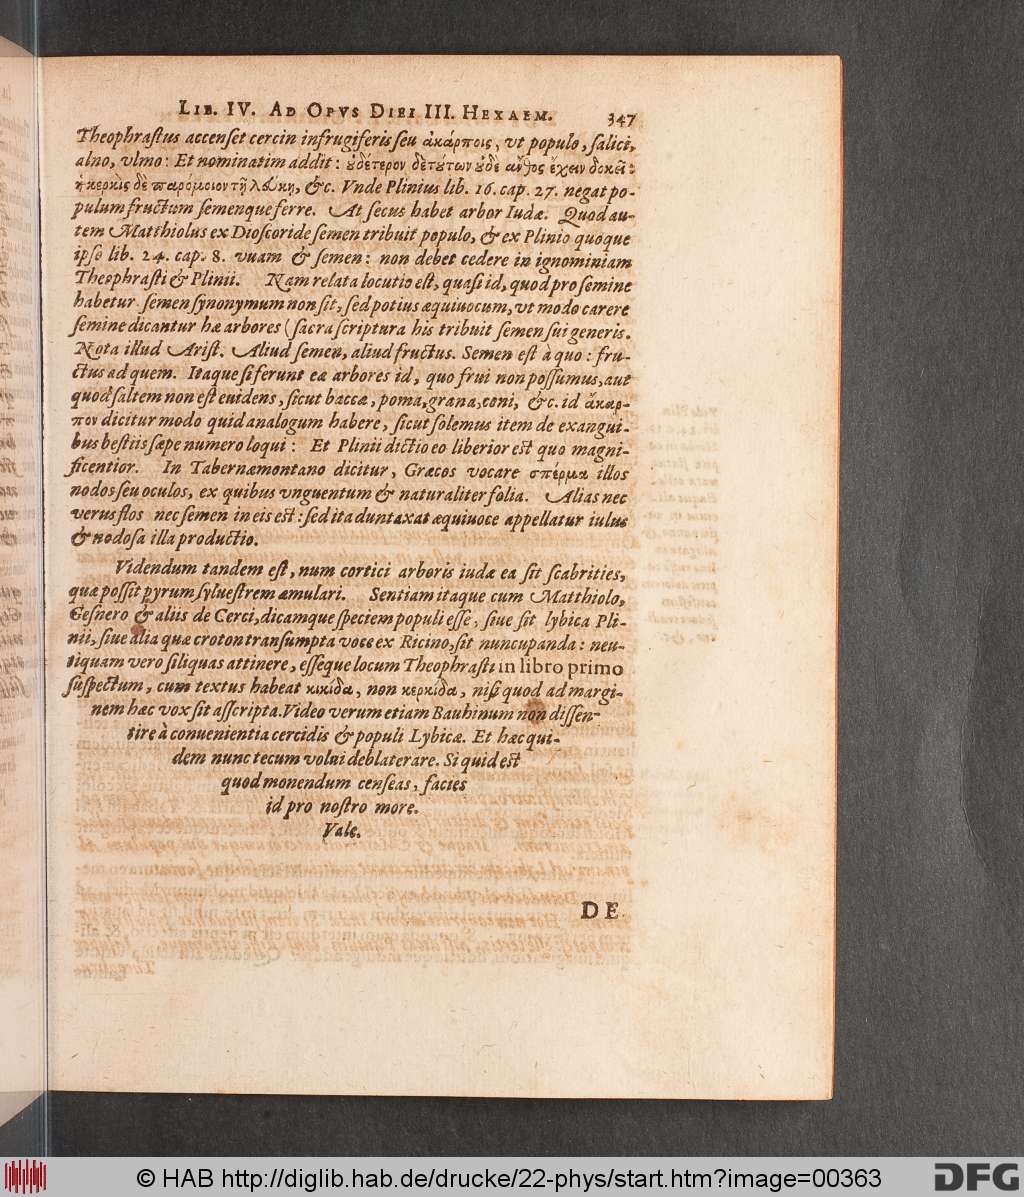 LIB. IV. AD OPVS DIEI III. HEXAEM. 347
Theophraſtus accenſet cercin infrugiferis ſeu ἀκάρποις, vt populo, ſalici,
alno, vlmo: Et nominatim addit: ὐδέτερον δὲ τύτων ὐδὲ ἄνθος ἔχειν δοκεῖ:
ἡ κερκὶς δὲ παρόμοιον τῇ λεύκῃ, &c. Vnde Plinius lib. 16. cap. 27. negat po-
pulum fructum ſemenque ferre. At ſecus habet arbor Iudæ. Quod au-
tem Matthiolus ex Dioſcoride ſemen tribuit populo, & ex Plinio quoque
ipſe lib. 24. cap. 8. vuam & ſemen: non debet cedere in ignominiam
Theophraſti & Plinii. Nam relata locutio eſt, quaſi id, quod pro ſemine
habetur ſemen ſynonymum non ſit, ſed potius æquiuocum, vt modo carere
ſemine dicantur hæ arbores (ſacra ſcriptura his tribuit ſemen ſui generis.
Nota illud Ariſt. Aliud ſemen, aliud fructus. Semen eſt à quo: fru-
ctus ad quem. Itaque ſi ferunt eæ arbores id, quo frui non poſſumus, aut
quod ſaltem non eſt euidens, ſicut baccæ, poma, grana, coni, &c. id ἄκαρ-
πον dicitur modo quid analogum habere, ſicut ſolemus item de exangui-
bus beſtiis ſæpe numero loqui: Et Plinii dictio eo liberior eſt quo magni-
ficentior. In Tabernæmontano dicitur, Græcos vocare σπέρμα illos
nodos ſeu oculos, ex quibus vnguentum & naturaliter folia. Alias nec
verus flos nec ſemen in eis eſt: ſed ita duntaxat æquiuoce appellatur iulus
& nodoſa illa productio.
Videndum tandem eſt, num cortici arboris iudæ ea ſit ſcabrities,
quæ poſſit pyrum ſylueſtrem æmulari. Sentiam itaque cum Matthiolo,
Geſnero & aliis de Cerci, dicamque ſpeciem populi eſſe, ſiue ſit lybica Pli-
nii, ſiue alia quæ croton tranſumpta voce ex Ricino, ſit nuncupanda: neu-
tiquam vero ſiliquas attinere, eſſeque locum Theophraſti in libro primo
ſuſpectum, cum textus habeat κικίδα, non κερκίδα, niſi quod ad margi-
nem hæc vox ſit aſſcripta. Video verum etiam Bauhinum non diſſen-
tire à conuenientia cercidis & populi Lybicæ. Et hæc qui-
dem nunc tecum volui deblaterare. Si quid eſt
quod monendum cenſeas, facies
id pro noſtro more.
Vale.
DE
© HAB http://diglib.hab.de/drucke/22-phys/start.htm?image=00363
DFG